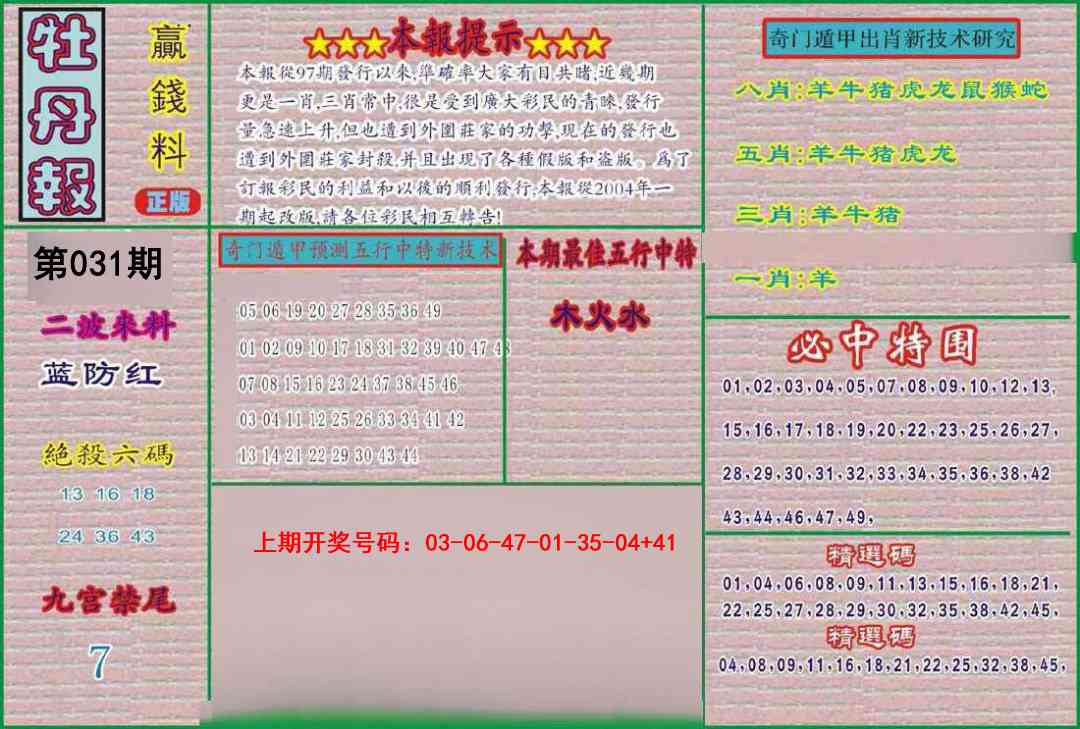 牡丹報
贏錢料
正版
★★★本報提示★★★
本報從97期發行以來,準確率大家有目共睹,近幾期
更是一肖,三肖常中,很是受到廣大彩民的青睞,發行
量急速上升,但也遭到外圍莊家的功擊,現在的發行也
遭到外圍莊家封殺,并且出現了各種假版和盗版。爲了
訂報彩民的利益和以後的順利發行,本報從2004年一
期起改版,請各位彩民相互轉告!
奇门遁甲出肖新技术研究
八肖:羊牛猪虎龙鼠猴蛇
五肖:羊牛猪虎龙
三肖:羊牛猪
一肖:羊
第031期
二波来料
蓝防红
絕殺六碼
13 16 18
24 36 43
九宫禁尾
7
奇门遁甲预测五行中特新技术
05 06 19 20 27 28 35 36 49
01 02 09 10 17 18 31 32 39 40 47 48
07 08 15 16 23 24 37 38 45 46
03 04 11 12 25 26 33 34 41 42
13 14 21 22 29 30 43 44
本期最佳五行中特
木火水
上期开奖号码：03-06-47-01-35-04+41
必中特围
01,02,03,04,05,07,08,09,10,12,13,
15,16,17,18,19,20,22,23,25,26,27,
28,29,30,31,32,33,34,35,36,38,42
43,44,46,47,49,
精選碼
01,04,06,08,09,11,13,15,16,18,21,
22,25,27,28,29,30,32,35,38,42,45,
精選碼
04,08,09,11,16,18,21,22,25,32,38,45,